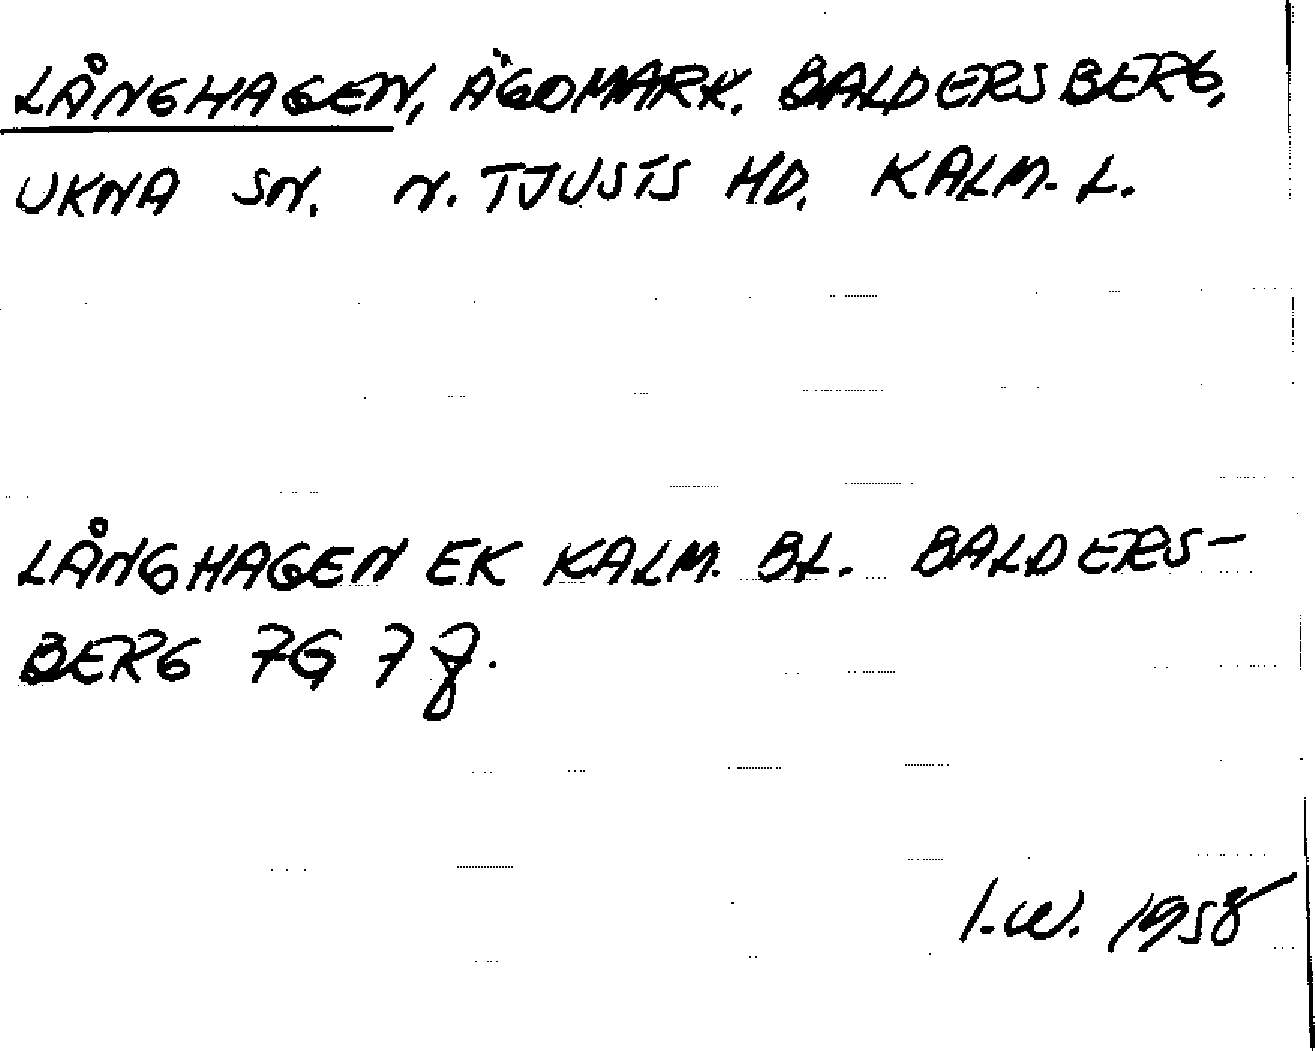 LÅNGHAGEN, ÄGOMARK. BALDERSBERG,
UKNA SN. N. TJUSTS HD. KALM. L.
LÅNGHAGEN EK KALM. BL. BALDERS-
BERG 7G 7 g.
I.W. 1958